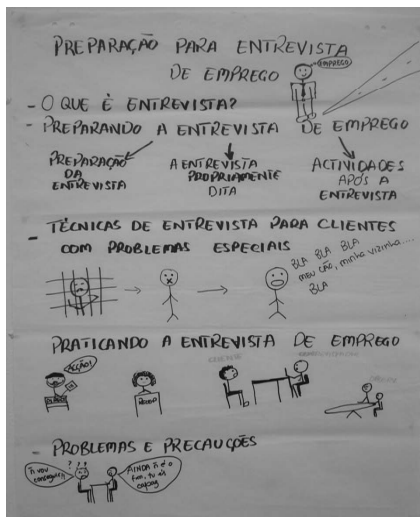 PREPARAÇÃO PARA ENTREVISTA
DE EMPREGO
EMPREGO
- O QUE É ENTREVISTA?
- PREPARANDO A ENTREVISTA DE EMPREGO
PREPARAÇÃO
DA
ENTREVISTA
A ENTREVISTA
PROPRIAMENTE
DITA
ACTIVIDADES
APÓS A
ENTREVISTA
- TÉCNICAS DE ENTREVISTA PARA CLIENTES
COM PROBLEMAS ESPECIAIS
BLA BLA BLA
meu cão, minha vizinha....
BLA
PRATICANDO A ENTREVISTA DE EMPREGO
ACÇÃO!
- PROBLEMAS E PRECAUÇÕES
ñ vou
conseguir!!
? ? ?
AINDA ñ é o
fim, tu és
capaz